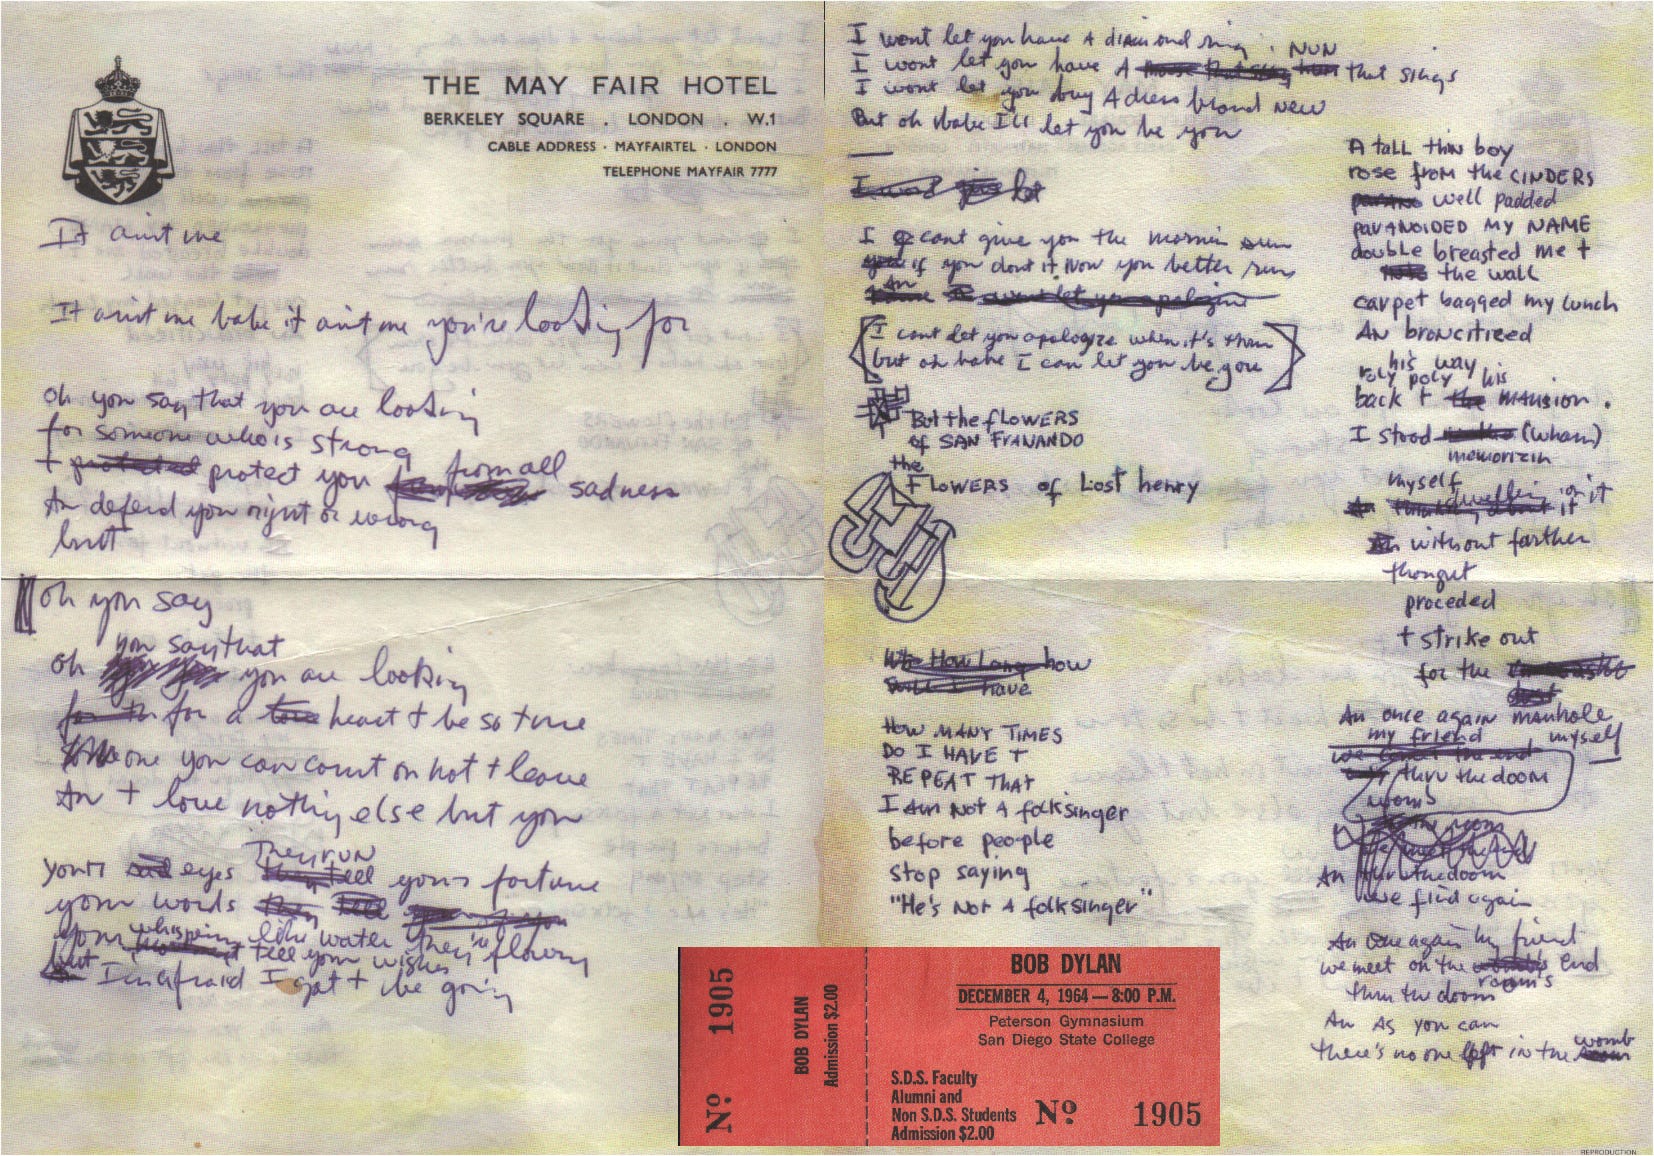 THE MAY FAIR HOTEL
BERKELEY SQUARE . LONDON . W.1
CABLE ADDRESS · MAYFAIRTEL · LONDON
TELEPHONE MAYFAIR 7777
It aint me
It aint me babe it aint me you're looking for
oh you say that you are looking
for someone who is strong
+ protect you from all sadness
An defend you right or wrong
but
oh you say
you say that
oh you are looking
for a heart + be so true
someone you can count on not + leave
An + love nothing else but you
They run
your eyes yours fortune
your words
your whispering like water they're flowing
but tell your wishes
I'm afraid I got + be going
I wont let you have A diamond ring
NUN
I wont let you have A that sings
I wont let you buy A dress brand new
But oh babe I'll let you be you
let
I cant give you the mornin sun
if you dont it now you better run
An
I cant let you apologize when it's
but oh babe I can let you be you
But the flowers
of SAN FRANANDO
the
FLOWERS of Lost henry
how
have
HOW MANY TIMES
DO I HAVE T
REPEAT THAT
I AM NOT A folksinger
before people
stop saying
"He's NOT A folksinger"
A tall thin boy
rose from the CINDERS
well padded
paranoided MY NAME
double breasted me +
the wall
carpet bagged my lunch
AN broncitieed
his way
roly poly his
back + MANsion.
I stood (wham)
memorizin
myself
dwelling on it
it
without farther
thought
proceded
+ strike out
for the
An once again manhole
my friend myself
thru the doom
rooms
An thru the doom
we find again
An once again my friend
we meet on the end
thru the doom rooms
An As you can
there's no one left in the womb
Nº 1905
BOB DYLAN
Admission $2.00
BOB DYLAN
DECEMBER 4, 1964 — 8:00 P.M.
Peterson Gymnasium
San Diego State College
S.D.S. Faculty
Alumni and
Non S.D.S. Students
Admission $2.00
Nº 1905
REPRODUCTION